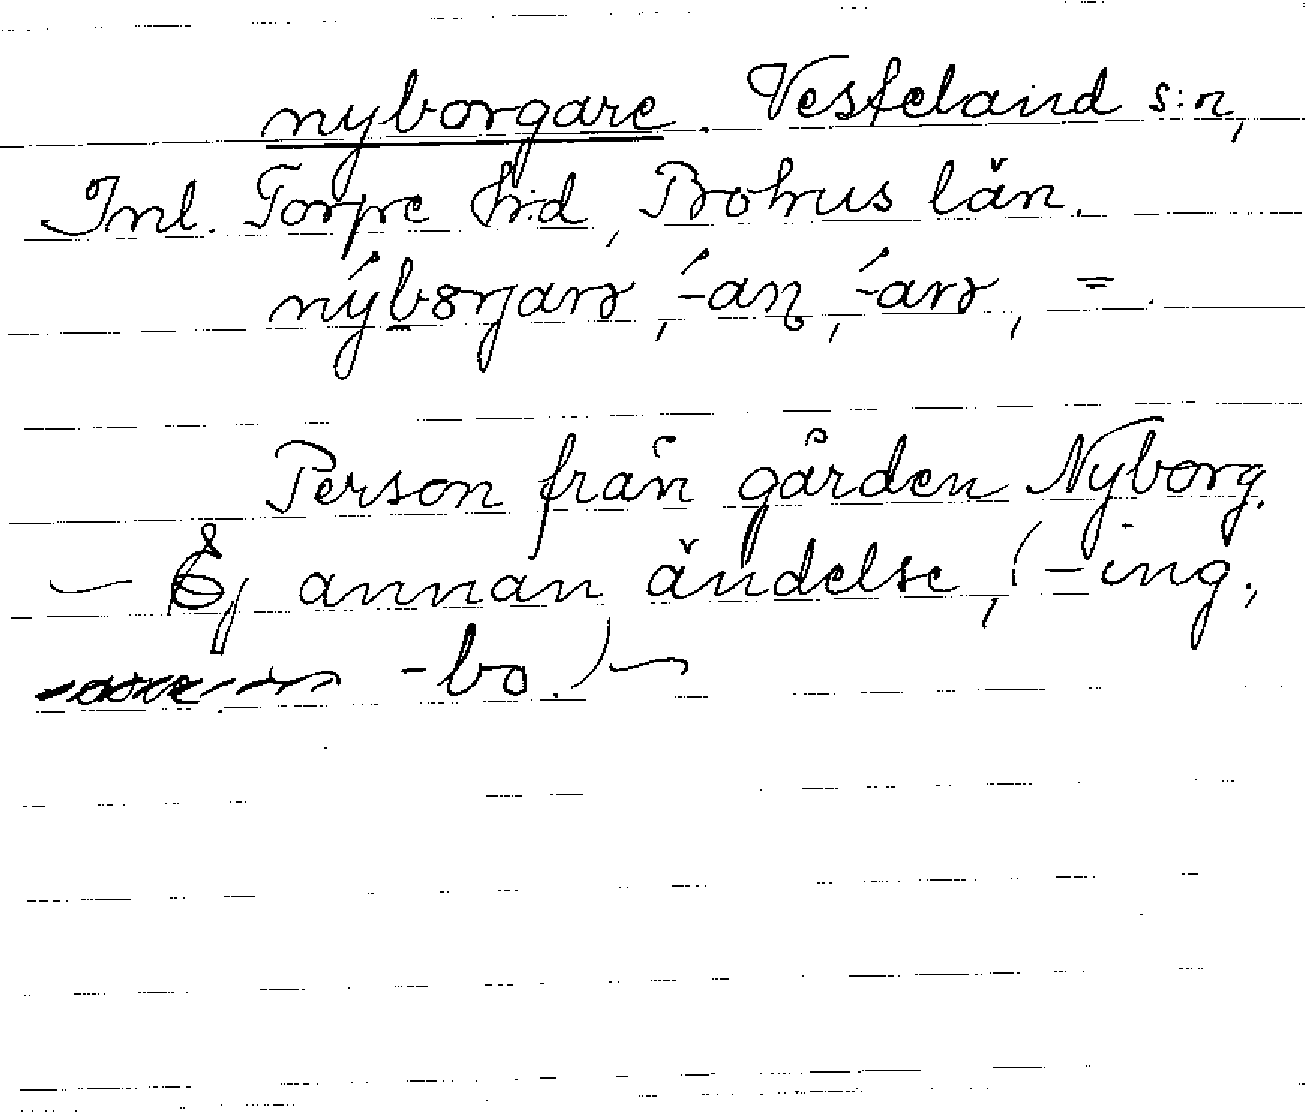 nyborgare. Vesteland s:n,
Inl. Torpe h:d, Bohus län.
nýbɔrjarə, ́-aɳ, ́-arə, =.
Person från gården Nyborg.
— Ej annan ändelse, (-ing,
-bo.) —